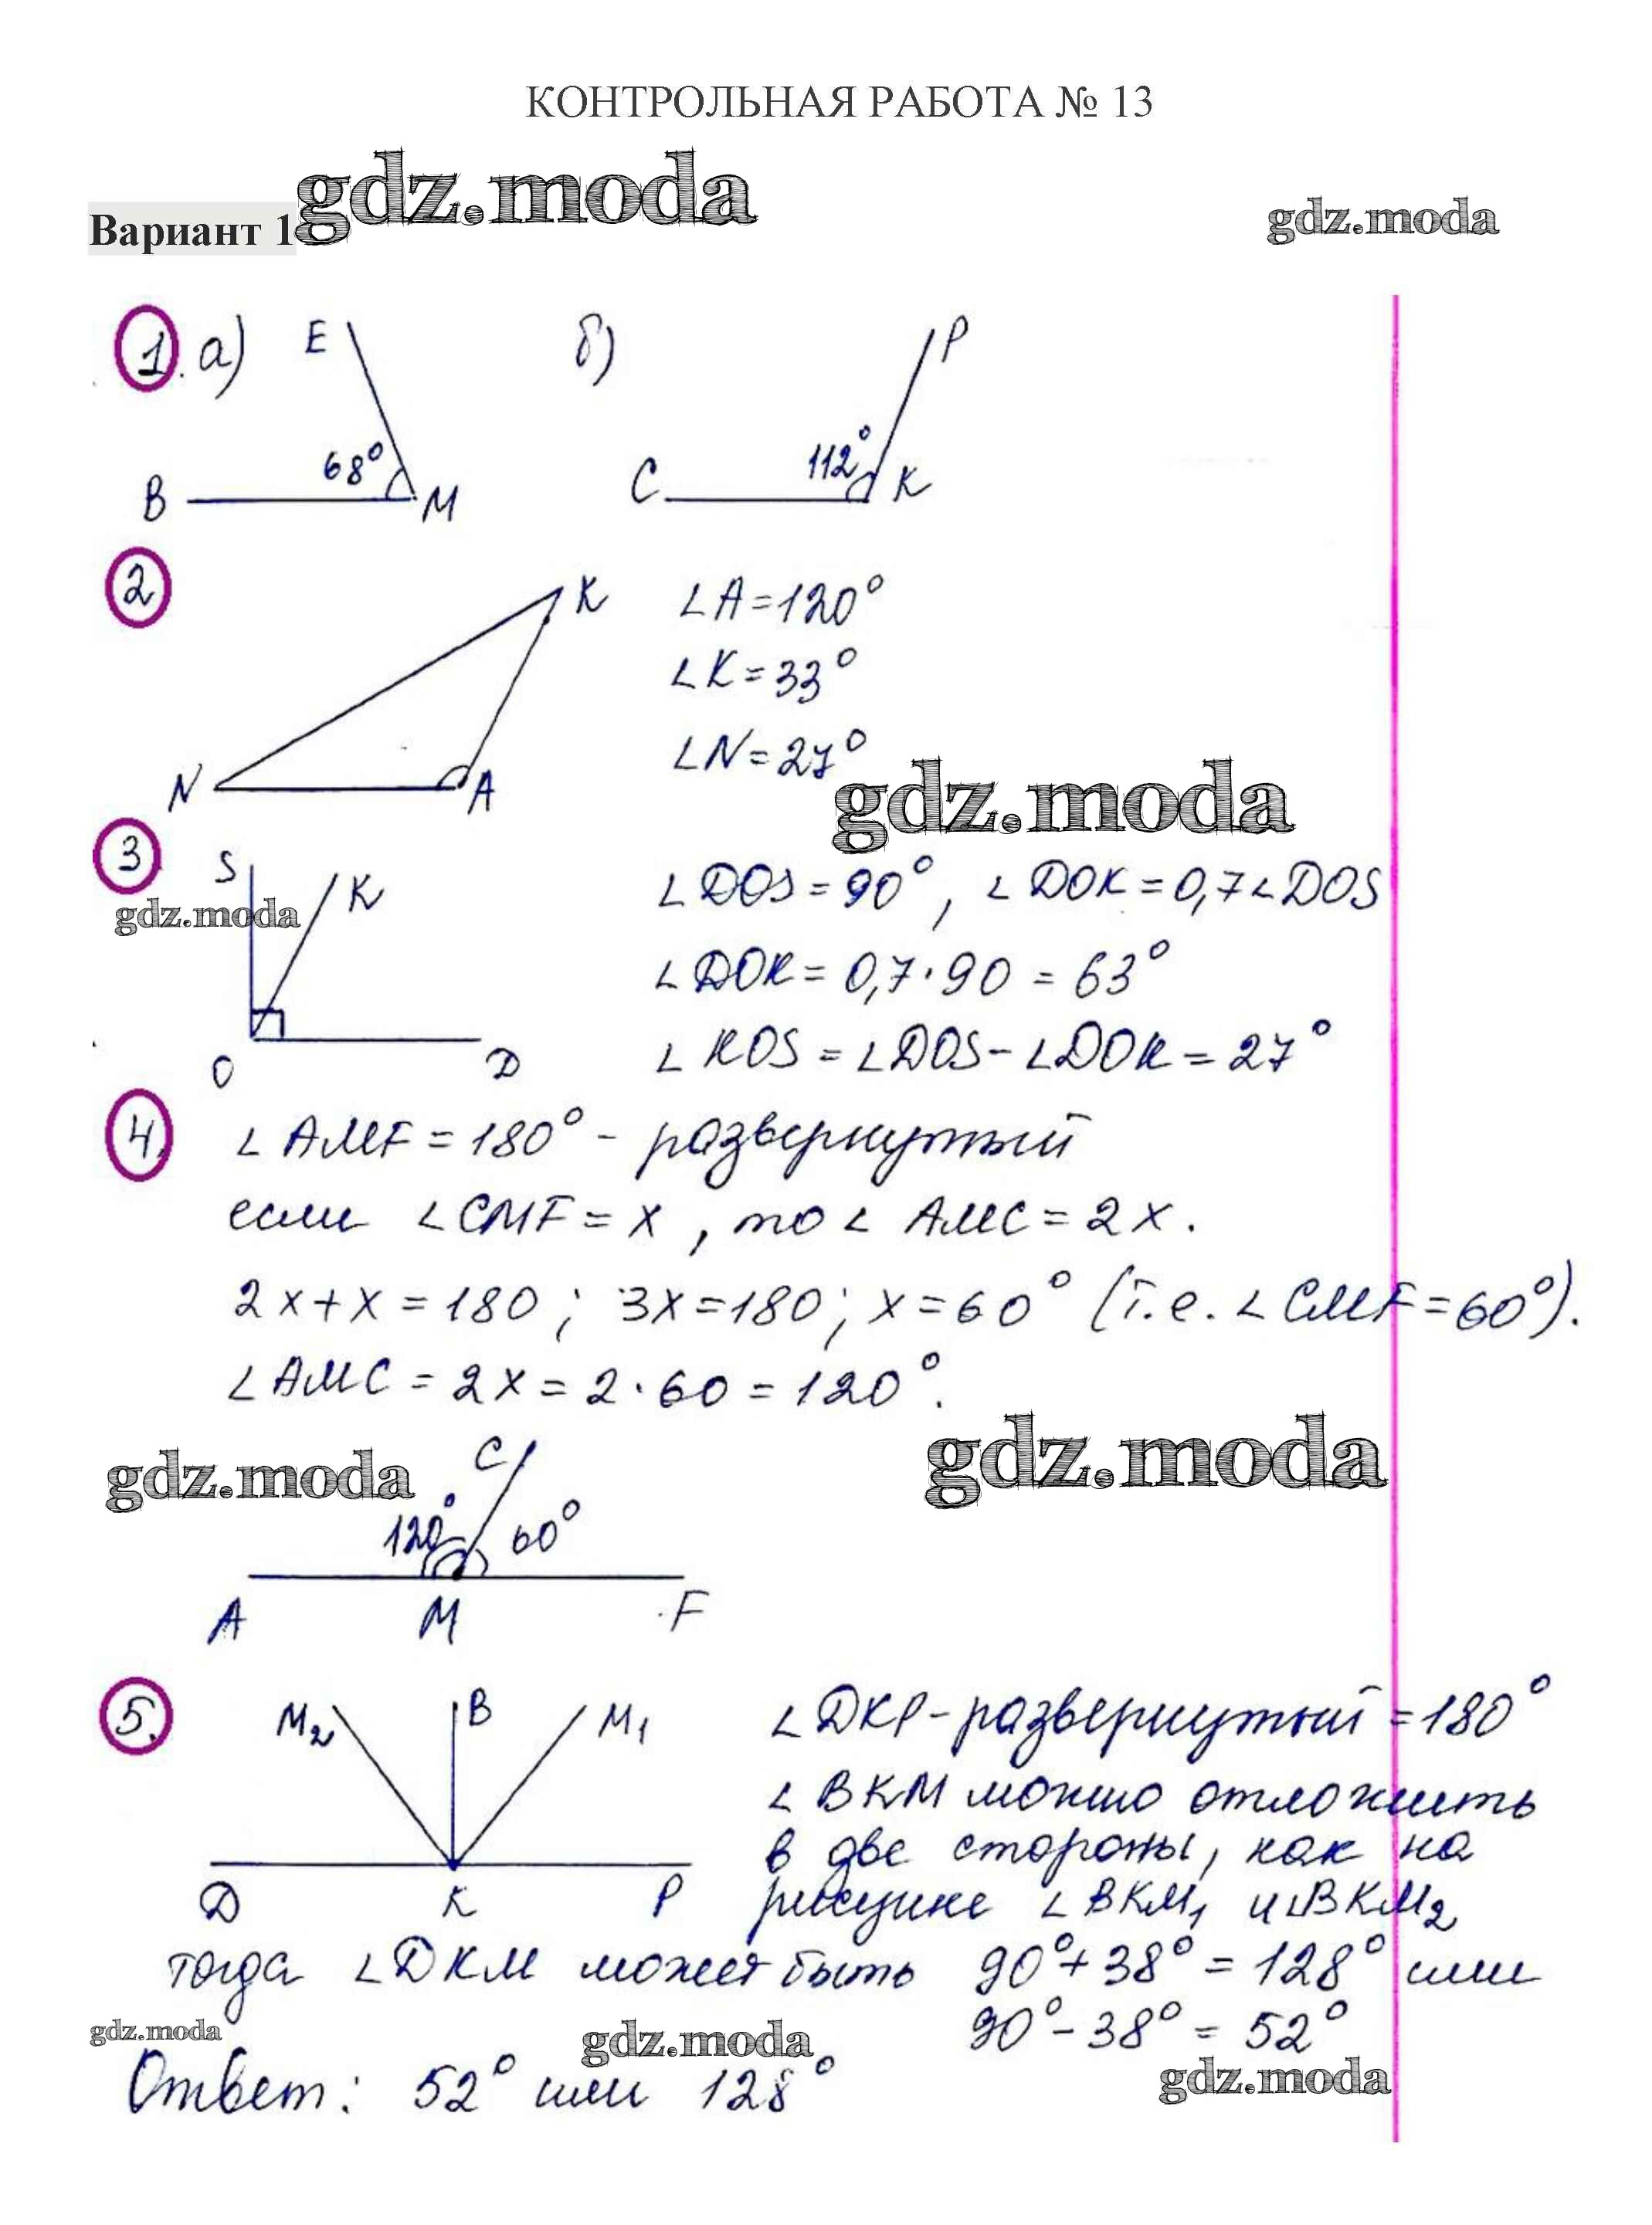 КОНТРОЛЬНАЯ РАБОТА № 13
gdz.moda
Вариант 1
gdz.moda
1. а) E 68° B M
б) P 112° C K
2 K N A
∠A=120°
∠K=33°
∠N=27°
gdz.moda
3 S K O D
gdz.moda
∠DOS=90°, ∠DOK=0,7∠DOS
∠DOK=0,7·90=63°
∠KOS=∠DOS-∠DOK=27°
4. ∠AMF=180° - развернутый
если ∠CMF=x, то ∠AMC=2x.
2x+x=180; 3x=180; x=60° (т.е. ∠CMF=60°).
∠AMC=2x=2·60=120°.
gdz.moda
C
gdz.moda
120° 60°
A M F
5. M₂ B M₁
D K P
∠DKP-развернутый=180°
∠BKM можно отложить
в две стороны, как на
рисунке ∠BKM₁ и ∠BKM₂
тогда ∠DKM может быть 90°+38°=128° или
90°-38°=52°
gdz.moda
gdz.moda
gdz.moda
Ответ: 52° или 128°